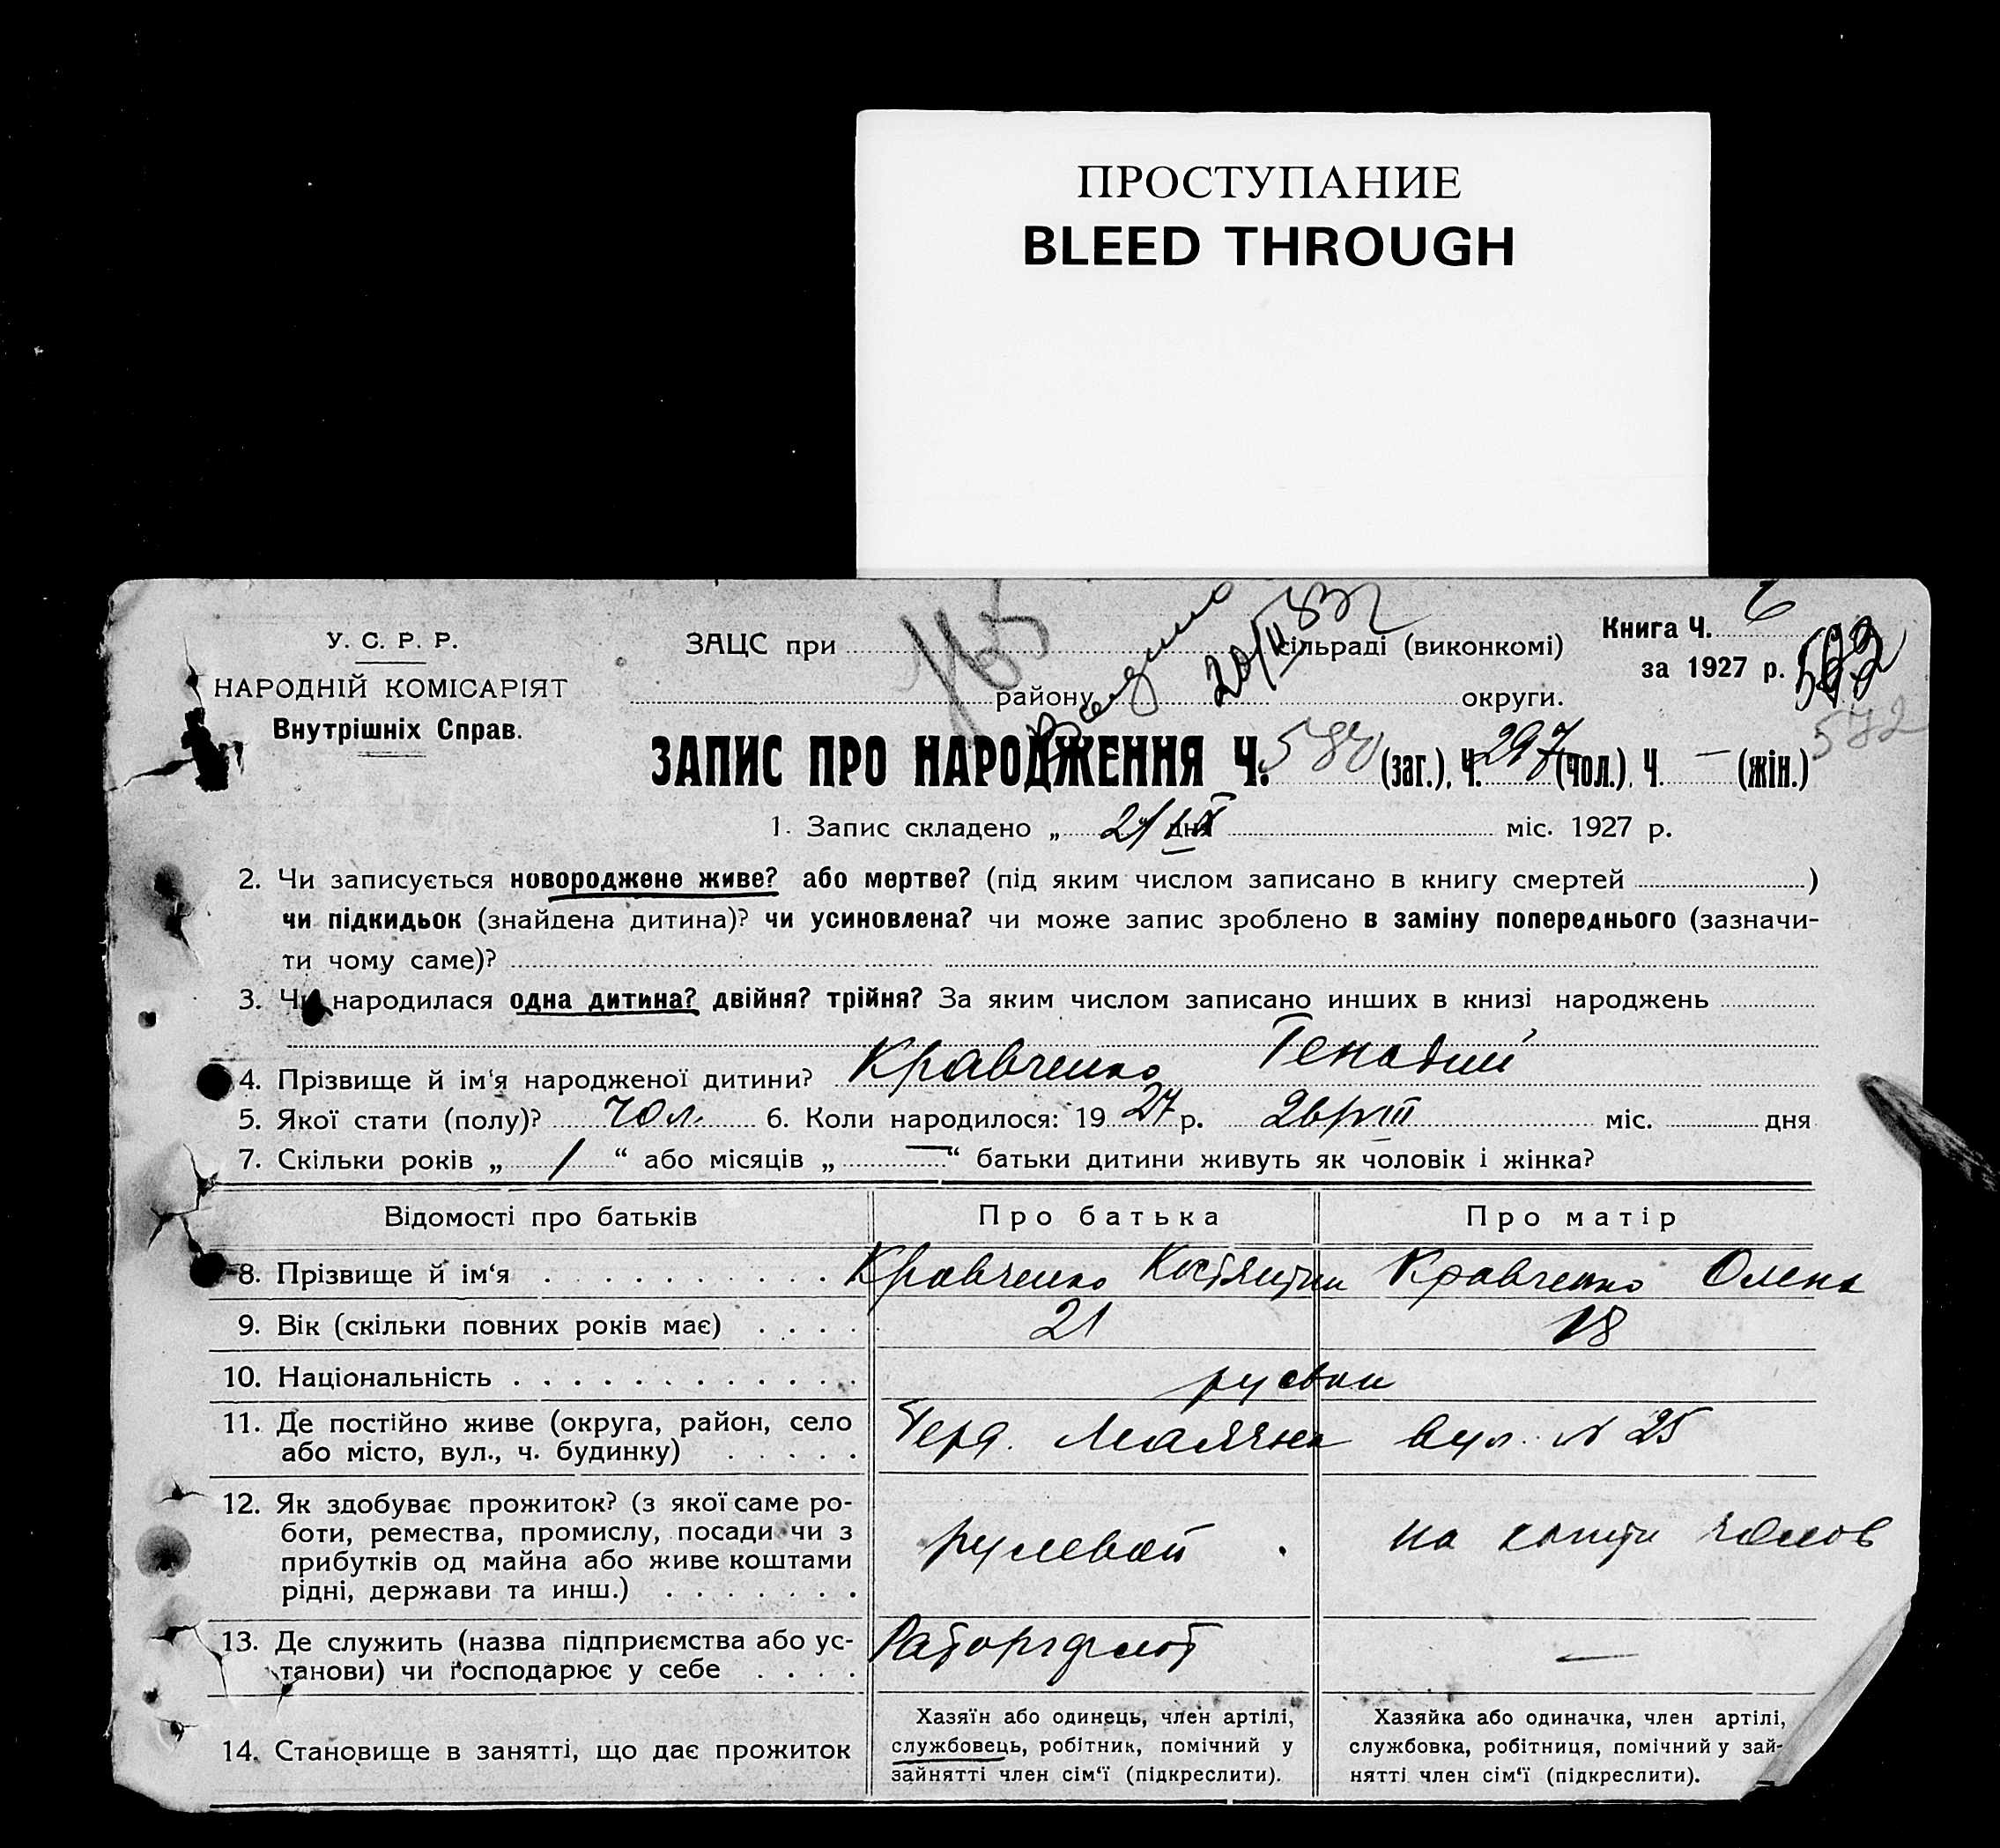 ПРОСТУПАНИЕ
BLEED THROUGH
У. С. Р. Р.
НАРОДНІЙ КОМІСАРІЯТ
Внутрішніх Справ.
ЗАЦС при сільраді (виконкомі)
району округи.
Книга Ч. 6
за 1927 р.
572
ЗАПИС ПРО НАРОДЖЕННЯ Ч. 580 (заг.), Ч. 297 (чол.), Ч. — (жін.)
1. Запис складено „ дня міс. 1927 р.
2. Чи записується новороджене живе? або мертве? (під яким числом записано в книгу смертей )
чи підкидьок (знайдена дитина)? чи усиновлена? чи може запис зроблено в заміну попереднього (зазначи-
ти чому саме)?
3. Чи народилася одна дитина? двійня? трійня? За яким числом записано инших в книзі народжень
4. Прізвище й ім'я народженої дитини? Кравченко Генадий
5. Якої стати (полу)? чол. 6. Коли народилося: 1927 р. 26/VIII міс. дня
7. Скільки років „ 1 “ або місяців „ — “ батьки дитини живуть як чоловік і жінка?
Відомості про батьків Про батька Про матір
8. Прізвище й ім'я Кравченко Костянтин Кравченко Олена
9. Вік (скільки повних років має) 21 18
10. Національність
11. Де постійно живе (округа, район, село
або місто, вул., ч. будинку) вул. № 25
12. Як здобуває прожиток? (з якої саме ро-
боти, ремества, промислу, посади чи з
прибутків од майна або живе коштами
рідні, держави та инш.)
рулевой на кошти чолов
13. Де служить (назва підприємства або ус-
танови) чи господарює у себе —
14. Становище в занятті, що дає прожиток
Хазяїн або одинець, член артілі,
службовець, робітник, помічний у
зайнятті член сім'ї (підкреслити).
Хазяйка або одиначка, член артілі,
службовка, робітниця, помічний у зай-
нятті член сім'ї (підкреслити).